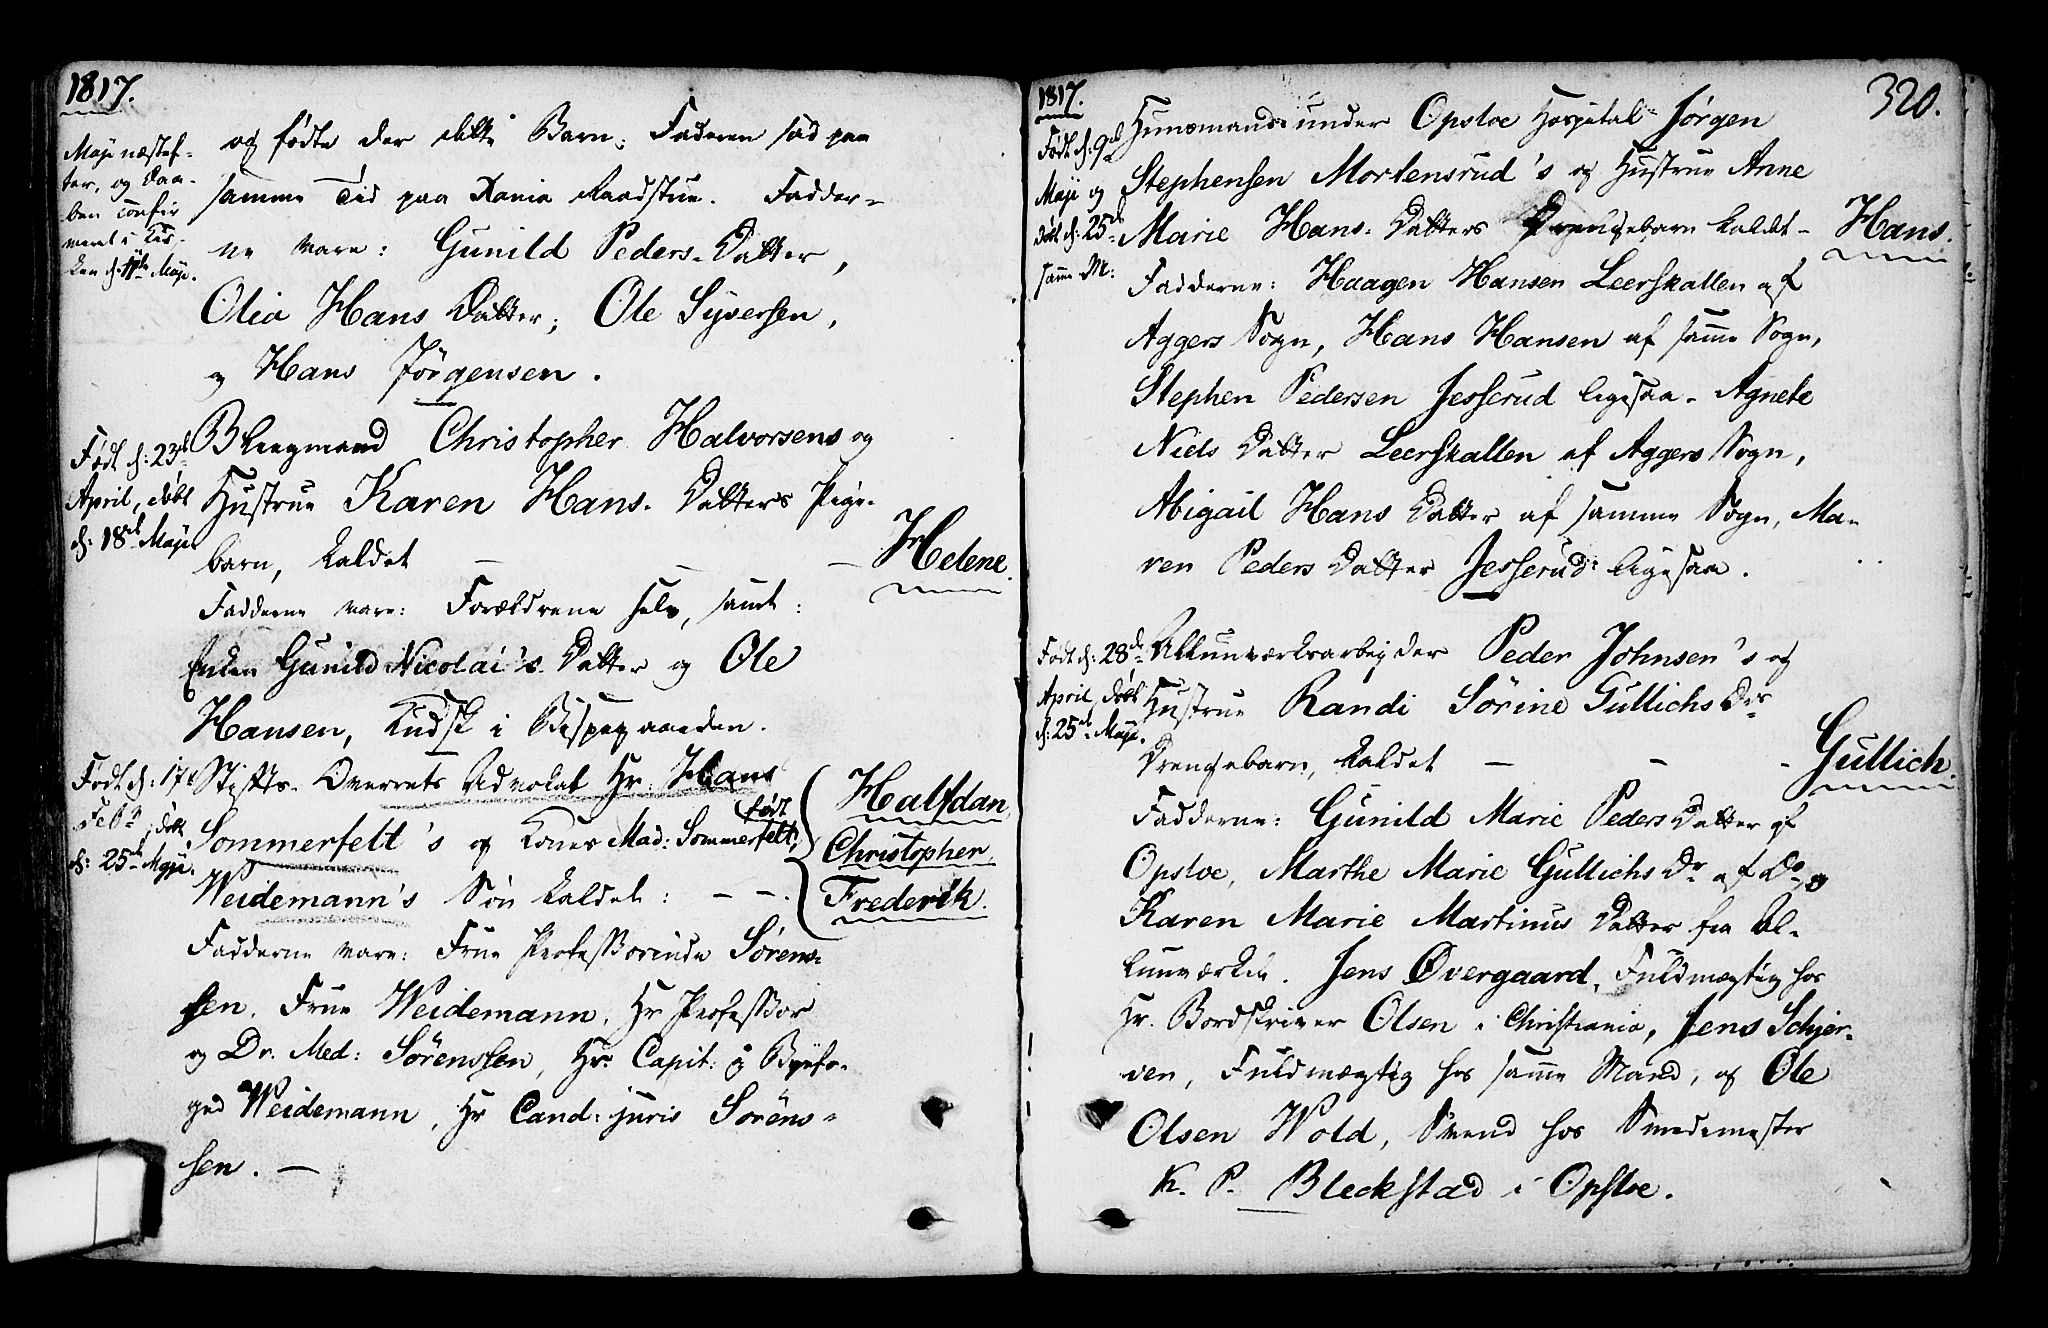 1817.
Maji næstef-
ter, og Daa-
ben confir
meret i Kir-
ken d: 11te Maji.
og fødte der dette Barn; Faderen sad paa
samme Tid paa Xania Raadstue. Fadder-
ne vare: Gunild Peders-Datter,
Olia Hans Datter; Ole Syversen,
og Hans Jörgensen.
Født d: 23de
April, døbt
d: 18de Maji
Bliegmand Christopher Halvorsens og
Hustrue Karen Hans-Datters Pige-
barn, kaldet — — — Helene.
Fadderne vare: Forældrene selv, samt:
Enken Gunild Nicolai's Datter og Ole
Hansen, Kudsk i Bispegaarden.
Født d: 17de
Febr, døbt
d: 25de Maji.
Stifts-Overrets Advokat Hr. Hans
Sommerfelt's og Kones Mad: Sommerfelt,
født
Weidemann's Søn kaldet: — —
Halfdan
Christopher
Frederik.
Fadderne vare: Frue Professorinde Sörens-
sen, Frue Weidemann, Hr Professor
og Dr. Med: Sörenssen, Hr. Capit: og Byfo-
ged Weidemann, Hr Cand: juris Sörens-
sen. —
1817.
320.
Født d: 9de
Maji og
døbt d: 25de
samme M:
Huusmand under Opsloe Hospital Jörgen
Stephensen Mortensrud's og Hustrue Anne
Marie Hans-Datters Drengebarn kaldet - Hans.
Fadderne: Haagen Hansen Leerskallen af
Aggers Sogn, Hans Hansen af samme Sogn,
Stephen Pedersen Jesserud ligesaa - Agnete
Niels Datter Leerskallen af Aggers Sogn,
Abigail Hans Datter af samme Sogn, Ma-
ren Peders Datter Jesserud ligesaa.
Født d: 28de
April, døbt
d: 25de Maji.
Allunværksarbejder Peder Johnsen's og
Hustrue Randi Sörine Gullichs Drs
Drengebarn, kaldet — — - Gullich.
Fadderne: Gunild Marie Peders Datter af
Opsloe, Marthe Marie Gullichs Dr af Do, og
Karen Marie Martinus Datter fra Al-
lunværket. Jens Overgaard, Fuldmægtig hos
Hr. Bordskriver Olsen i Christiania, Jens Schjer-
ven, Fuldmægtig hos samme Mand, og Ole
Olsen Wold, Svend hos Smedemester
K. P. Bleckstad i Opsloe.